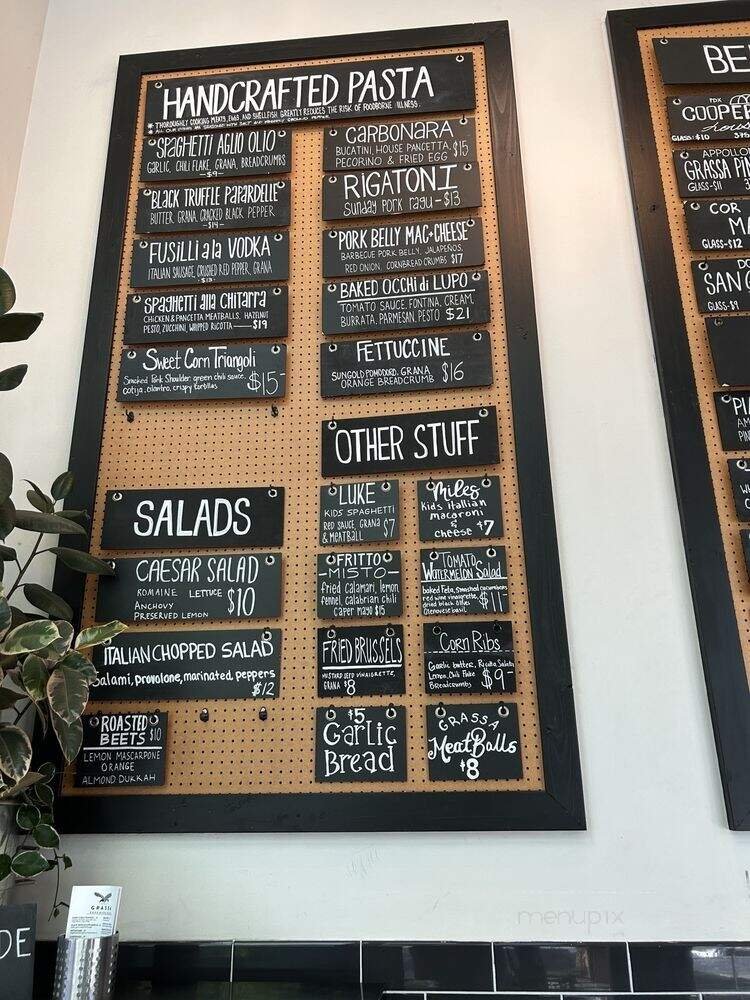 HANDCRAFTED PASTA
* THOROUGHLY COOKING MEATS, EGGS, AND SHELLFISH GREATLY REDUCES THE RISK OF FOODBORNE ILLNESS.
SPAGHETTI AGLIO OLIO
GARLIC, CHILI FLAKE, GRANA, BREADCRUMBS
-$9-
BLACK TRUFFLE PAPARDELLE
BUTTER, GRANA, CRACKED BLACK PEPPER
-$14-
FUSILLI a la VODKA
ITALIAN SAUSAGE, CRUSHED RED PEPPER, GRANA
-$13-
SPaGHeTTi alla CHiTarra
CHICKEN & PANCETTA MEATBALLS, HAZELNUT
PESTO, ZUCCHINI, WHIPPED RICOTTA —— $19
Sweet Corn Triangoli
Smoked Pork Shoulder, green chili sauce,
cotija, cilantro, crispy tortillas $15-
CaRBONaRa
BUCATINI, HOUSE PANCETTA,
PECORINO & FRIED EGG $15
RIGATONI
Sunday Pork ragu - $13
PORK BELLY MAC+CHEESE
BARBECUE PORK BELLY, JALAPEÑOS,
RED ONION, CORNBREAD CRUMBS $17
BAKED OCCHI di LUPO
TOMATO SAUCE, FONTINA, CREAM,
BURRATA, PARMESAN, PESTO $21
FETTUCCINE
SUNGOLD POMODORO, GRANA
ORANGE BREADCRUMB $16
OTHER STUFF
LUKE
KIDS SPAGHETTI
RED SAUCE, GRANA
& MEATBALL $7
Miles
kids itallian
macaroni
&
cheese $7
FRITTO
-MISTO-
fried calamari, lemon,
fennel, calabrian chili
caper mayo $15
TOMATO
WaTermelon Salad
baked Feta, smashed cucumbers
red wine vinaigrette,
dried black olives
Genovese basil $11
FRIED BRUSSELS
MUSTARD SEED VINAIGRETTE,
GRANA $8
Corn Ribs
Garlic butter, Ricotta Salata
Lemon, Chili Flake
Breadcrumbs $9-
$5
GaRLic
BReaD
GRASSA
MeatBalls
$8
SALADS
CAESAR SALAD
ROMAINE LETTUCE
ANCHOVY
PRESERVED LEMON $10
ITALIAN CHOPPED SALAD
Salami, provalone, marinated peppers
$12
ROASTED
BEETS $10
LEMON MASCARPONE
ORANGE
ALMOND DUKKAH
BE
PDX
COOPE
GLASS-$10
APPOLLO
GRASSA PIN
GLASS-$11
COR
MA
GLASS-$12
DO
SANG
GLASS-$9
GRASSA
DE
menupix